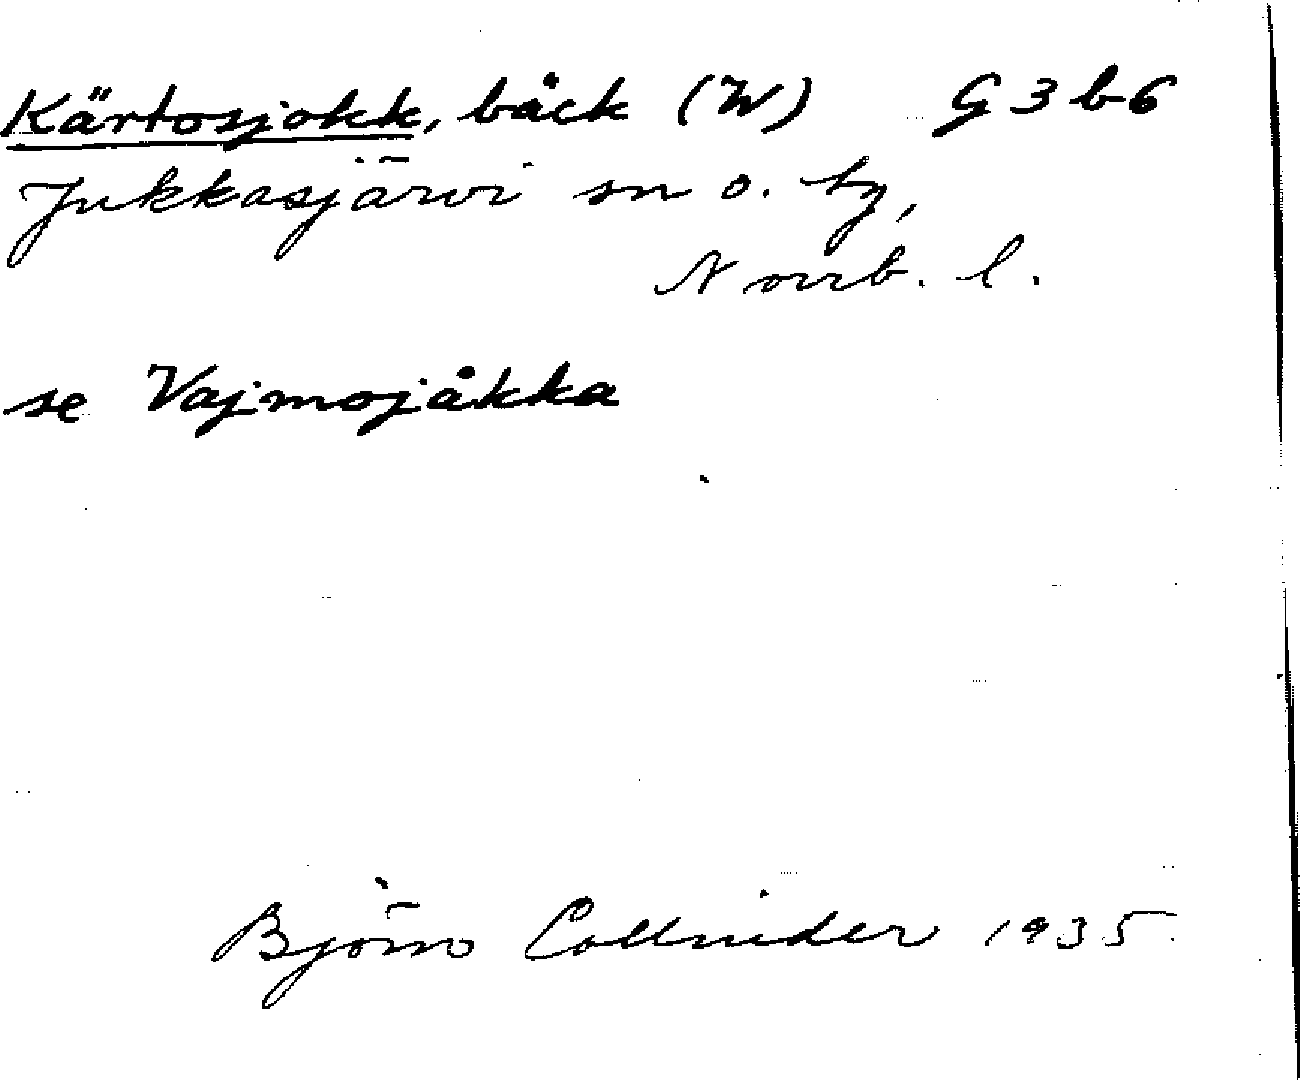 Kärtosjokk, bäck (W) G 3 b 6
Jukkasjärvi sn o. tg,
Norrb. l.
se Vajmojåkka
Björn Collinder 1935